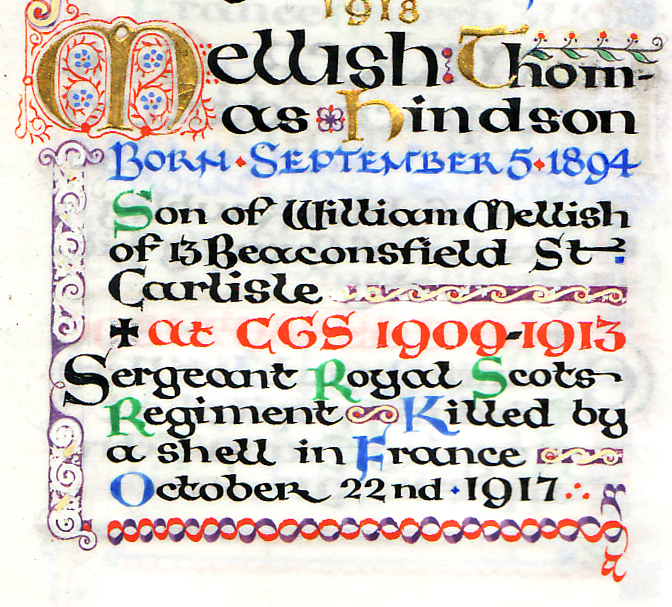 1918
Mellish : Thom-
as Hindson
BORN · SEPTEMBER 5 · 1894
Son of William Mellish
of 13 Beaconsfield St
Carlisle
✝ at CGS 1909-1913
Sergeant Royal Scots
Regiment Killed by
a shell in France
October 22nd · 1917